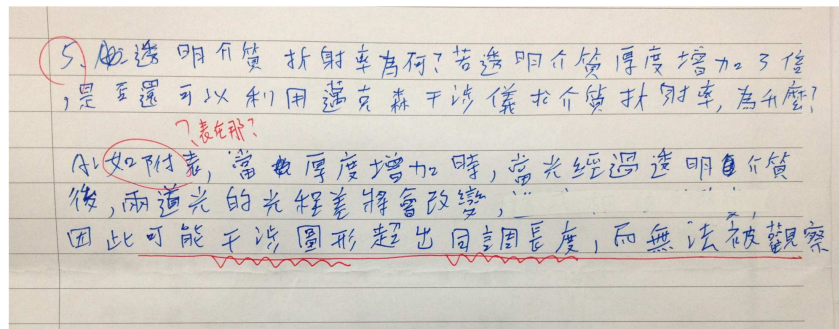 5、透明介質折射率為何?若透明介質厚度增加3倍
,是否還可以利用邁克森干涉儀求介質折射率,為什麼?
?表在那?
A:如附表,當厚度增加時,當光經過透明介質
後,兩道光的光程差將會改變,
因此可能干涉圖形超出同調長度,而無法被觀察